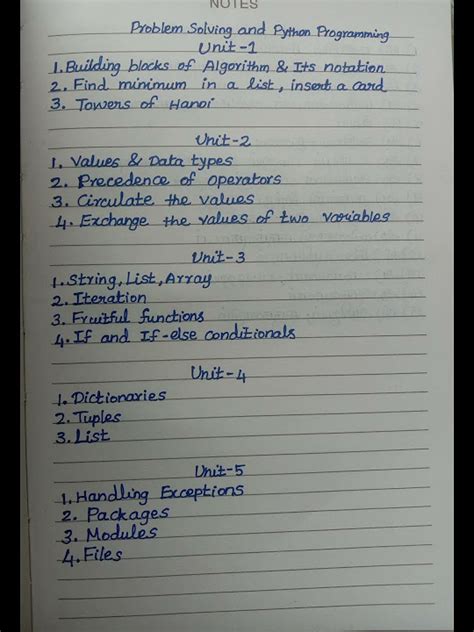 NOTES
Problem Solving and Python Programming
Unit-1
1. Building blocks of Algorithm & Its notation
2. Find minimum in a list, insert a card
3. Towers of Hanoi
Unit-2
1. Values & Data types
2. Precedence of operators
3. Circulate the values
4. Exchange the values of two variables
Unit-3
1. String, List, Array
2. Iteration
3. Fruitful functions
4. If and If-else conditionals
Unit-4
1. Dictionaries
2. Tuples
3. List
Unit-5
1. Handling Exceptions
2. Packages
3. Modules
4. Files